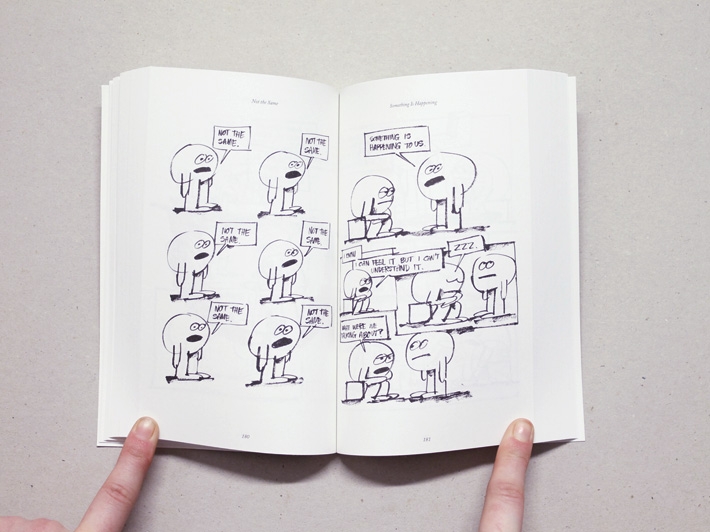 Not the Same
NOT THE
SAME.
NOT THE
SAME
NOT THE
SAME.
NOT THE
SAME.
NOT THE
SAME.
NOT THE
SAME.
180
Something Is Happening
SOMETHING IS
HAPPENING TO US
I CAN FEEL IT BUT I CAN'T
UNDERSTAND IT.
ZZZ.
WERE WE
ABOUT?
181